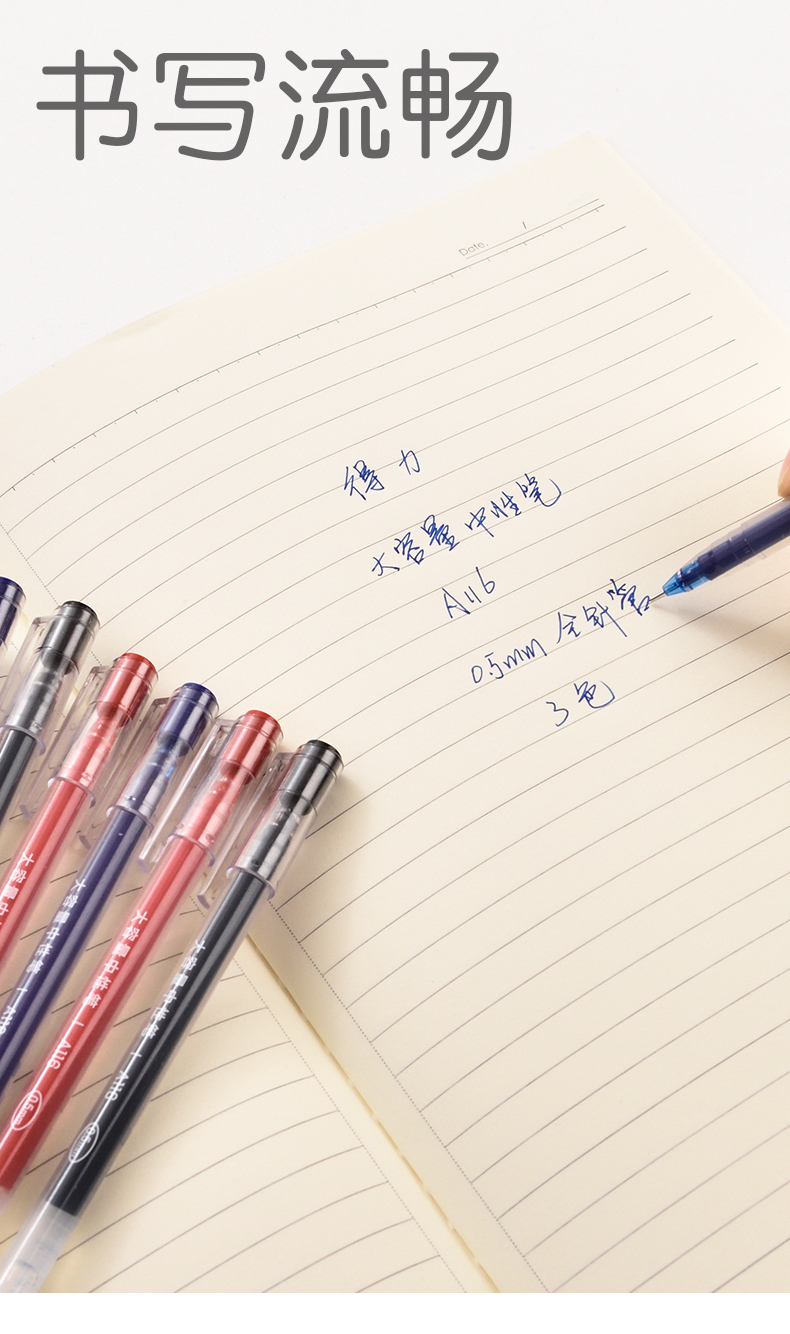 书写流畅
Date. /
得力
大容量中性笔
A116
0.5mm 全针管
3色
大容量中
大容量中性笔 | A116
大容量中性笔 | A116 0.5mm
大容量中性笔 | A116 0.5mm